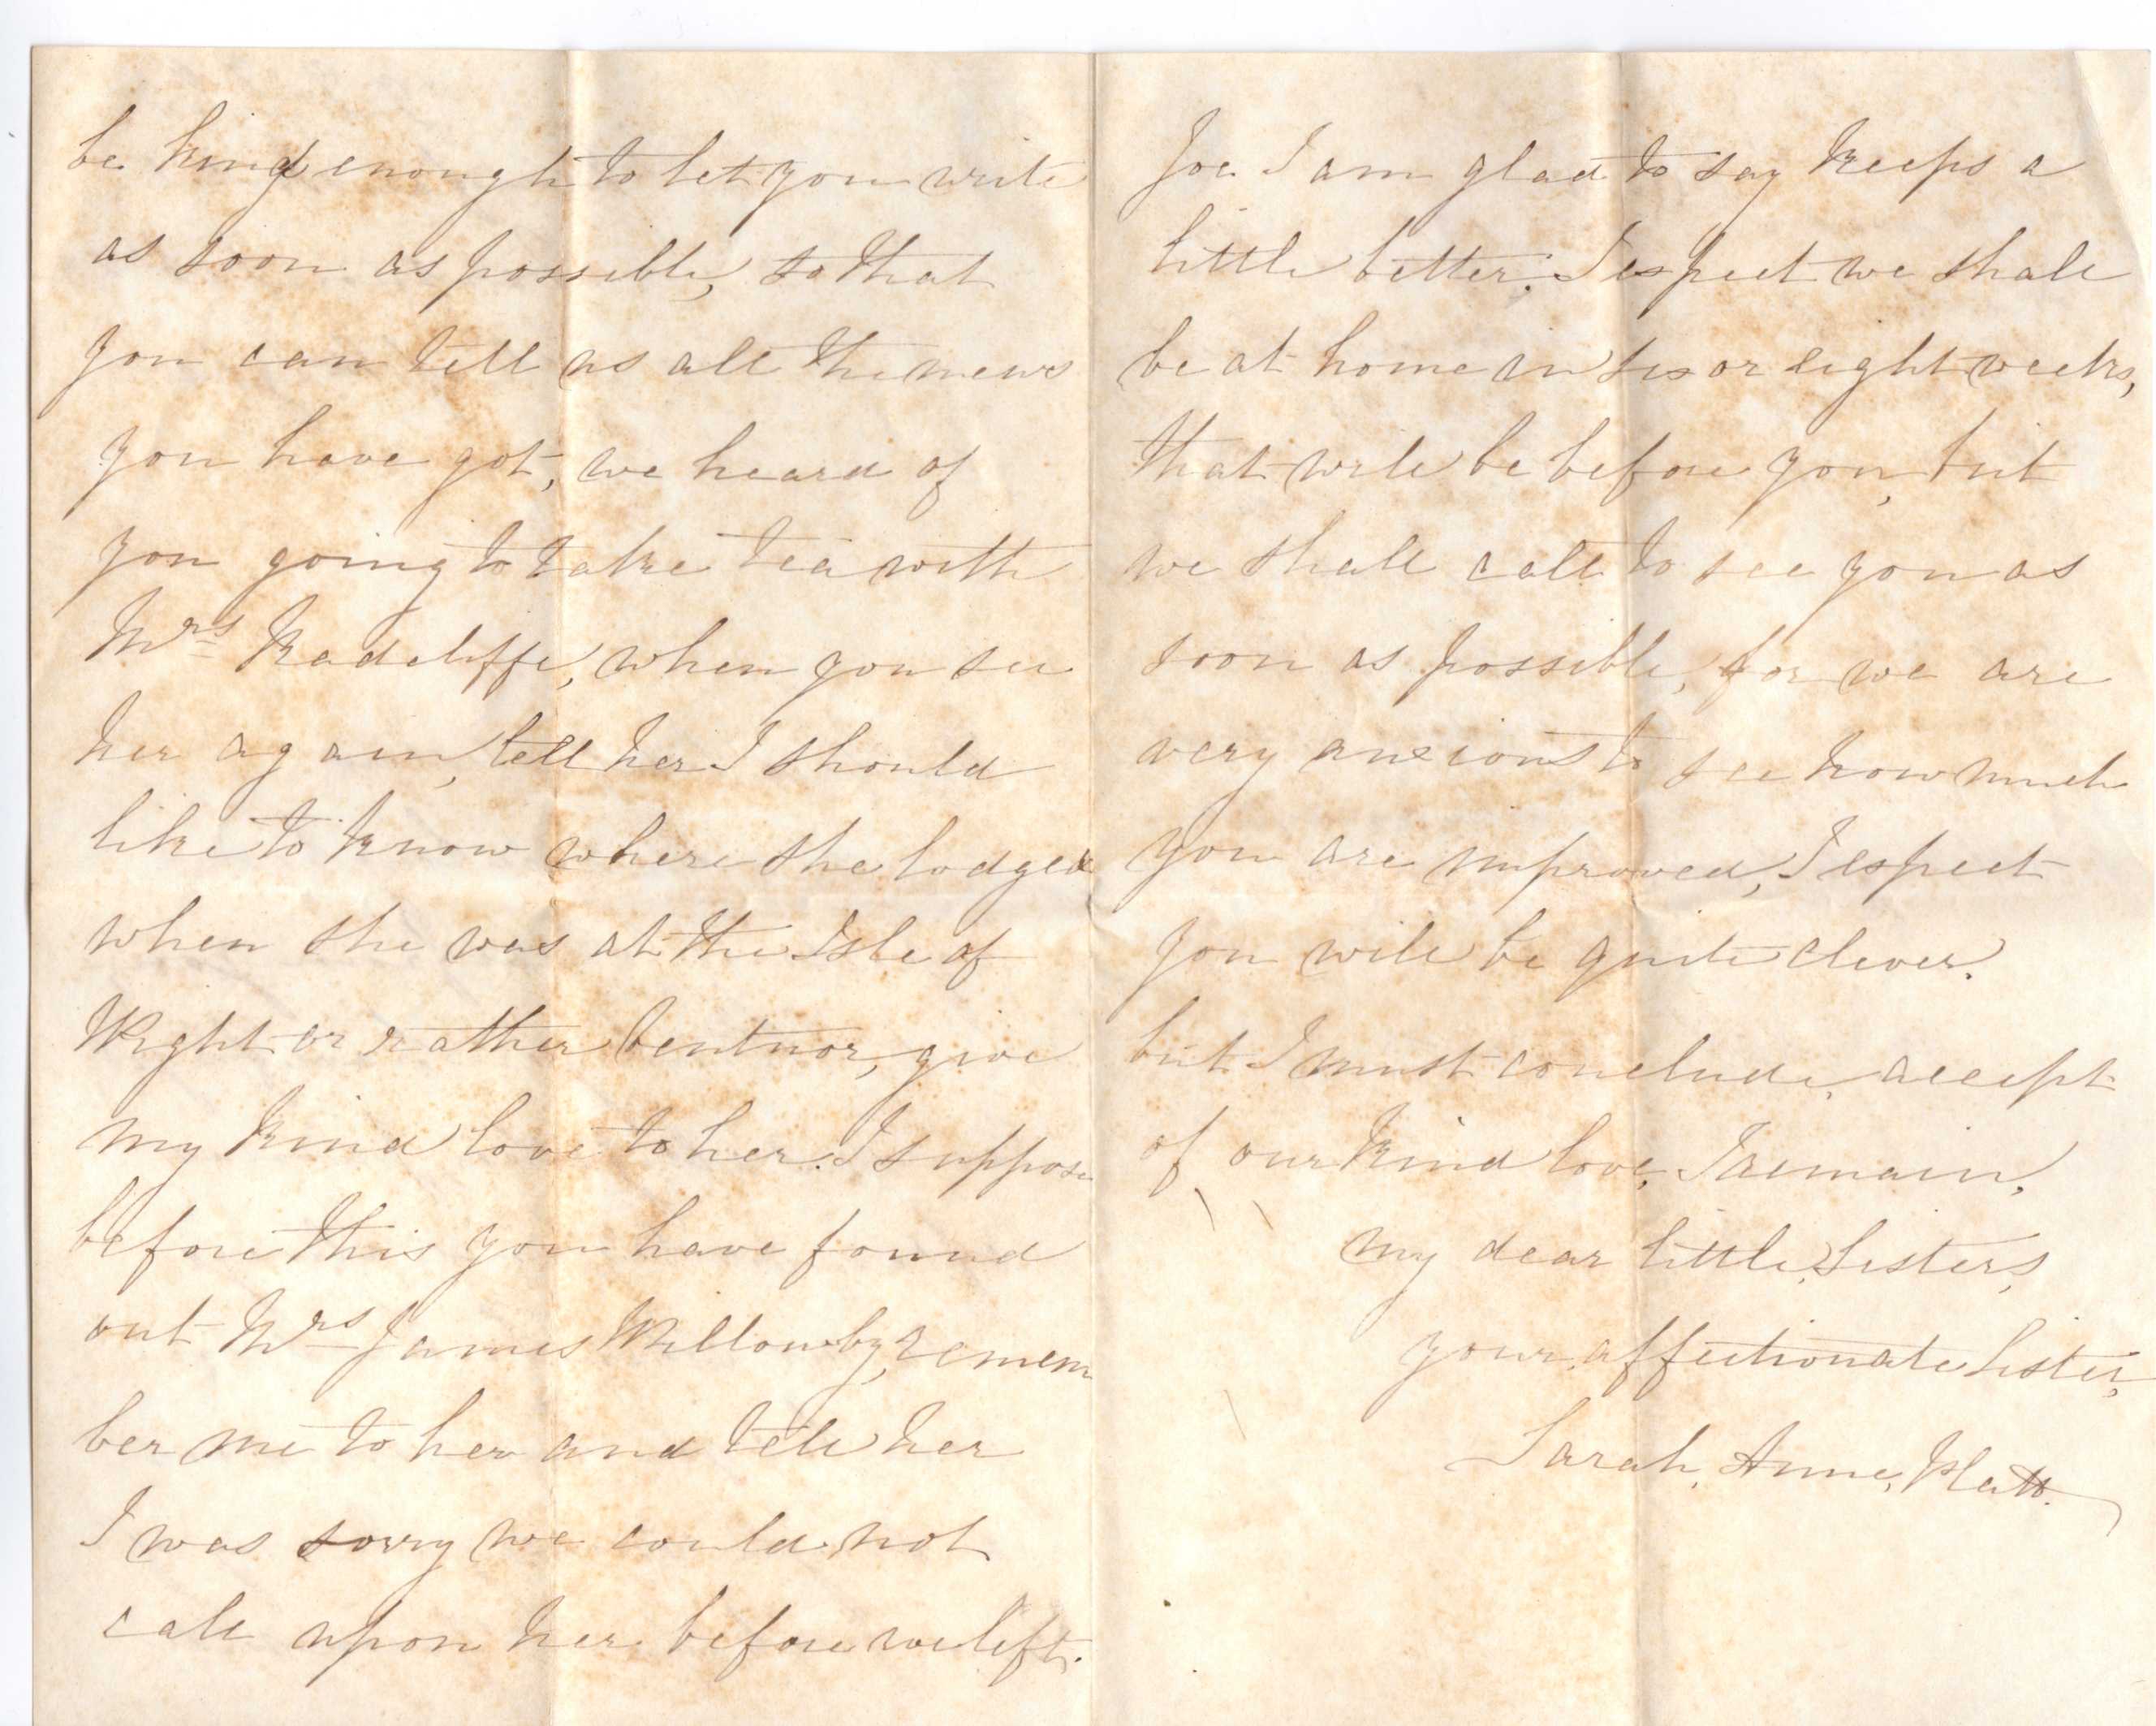 be kind enough to let you write
as soon as possible, so that
you can tell us all the news
you have got, we heard of
you going to take tea with
Mrs Radcliffe, when you see
her again, tell her I should
like to know where she lodged
when she was at the Isle of
Wight or rather Ventnor, give
my kind love to her. I suppose
before this you have found
out Mrs James Willowby, remem
ber me to her and tell her
I was sorry we could not
call upon her before we left.
Joe I am glad to say keeps a
little better. I expect we shall
be at home in six or eight weeks,
that will be before you, but
we shall call to see you as
soon as possible, for we are
very anxious to see how much
you are improved, I expect
you will be quite clever.
but I must conclude, accept
of our kind love, I remain,
my dear little Sisters,
your affectionate Sister,
Sarah, Anne, Platt.